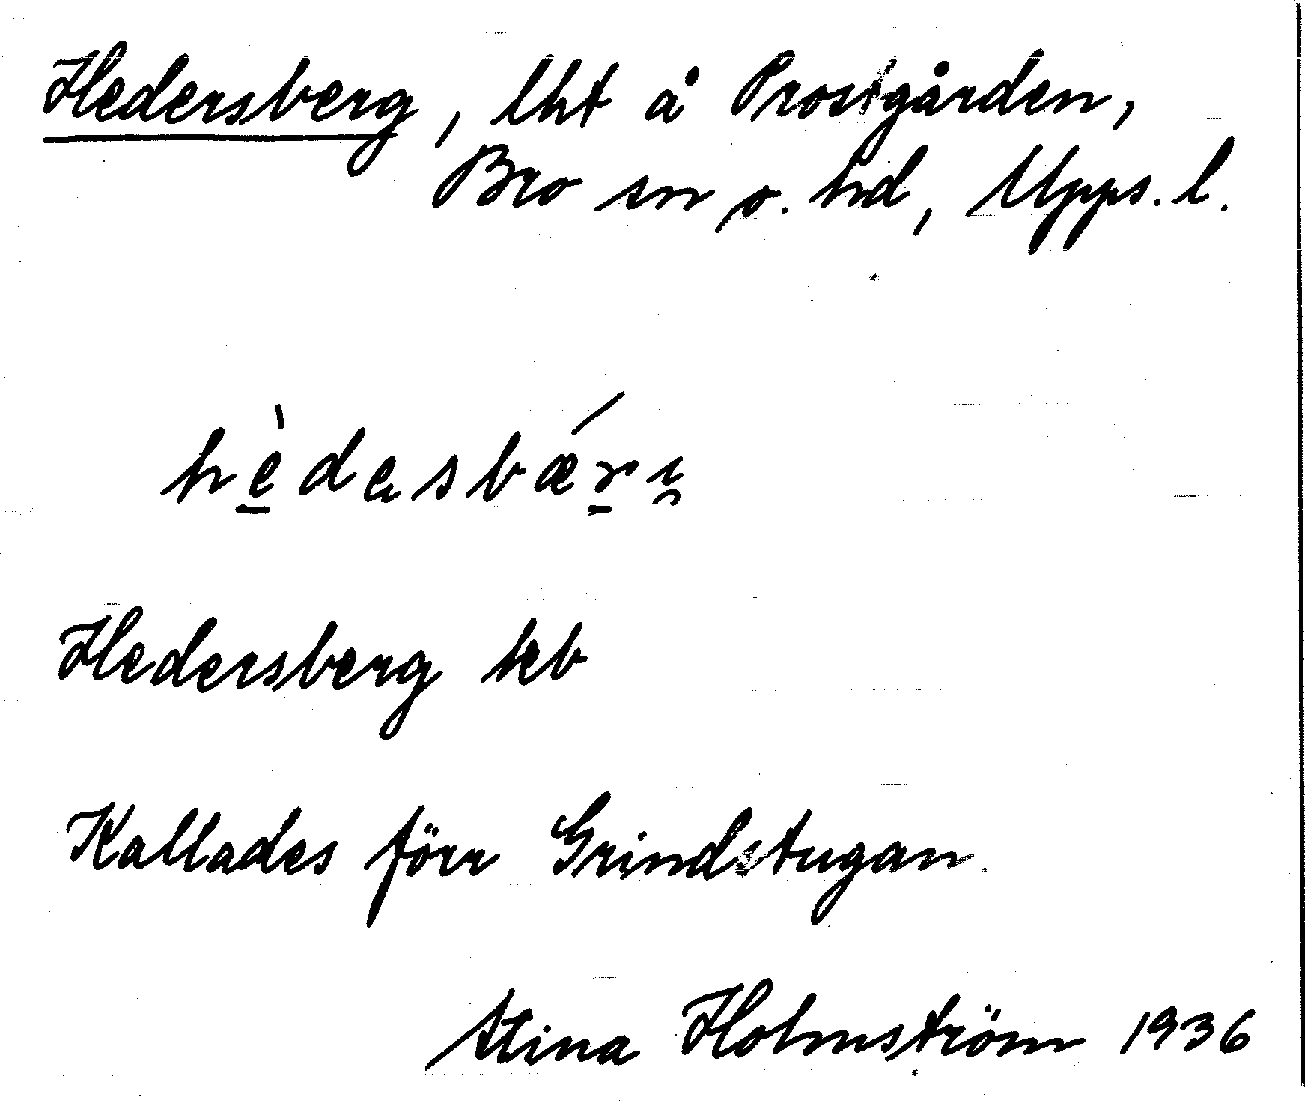 Hedersberg, lht å Prostgården,
Bro sn o. hd, Upps. l.
Hedersberg keb
Kallades förr Grindstugan.
Stina Holmström 1936